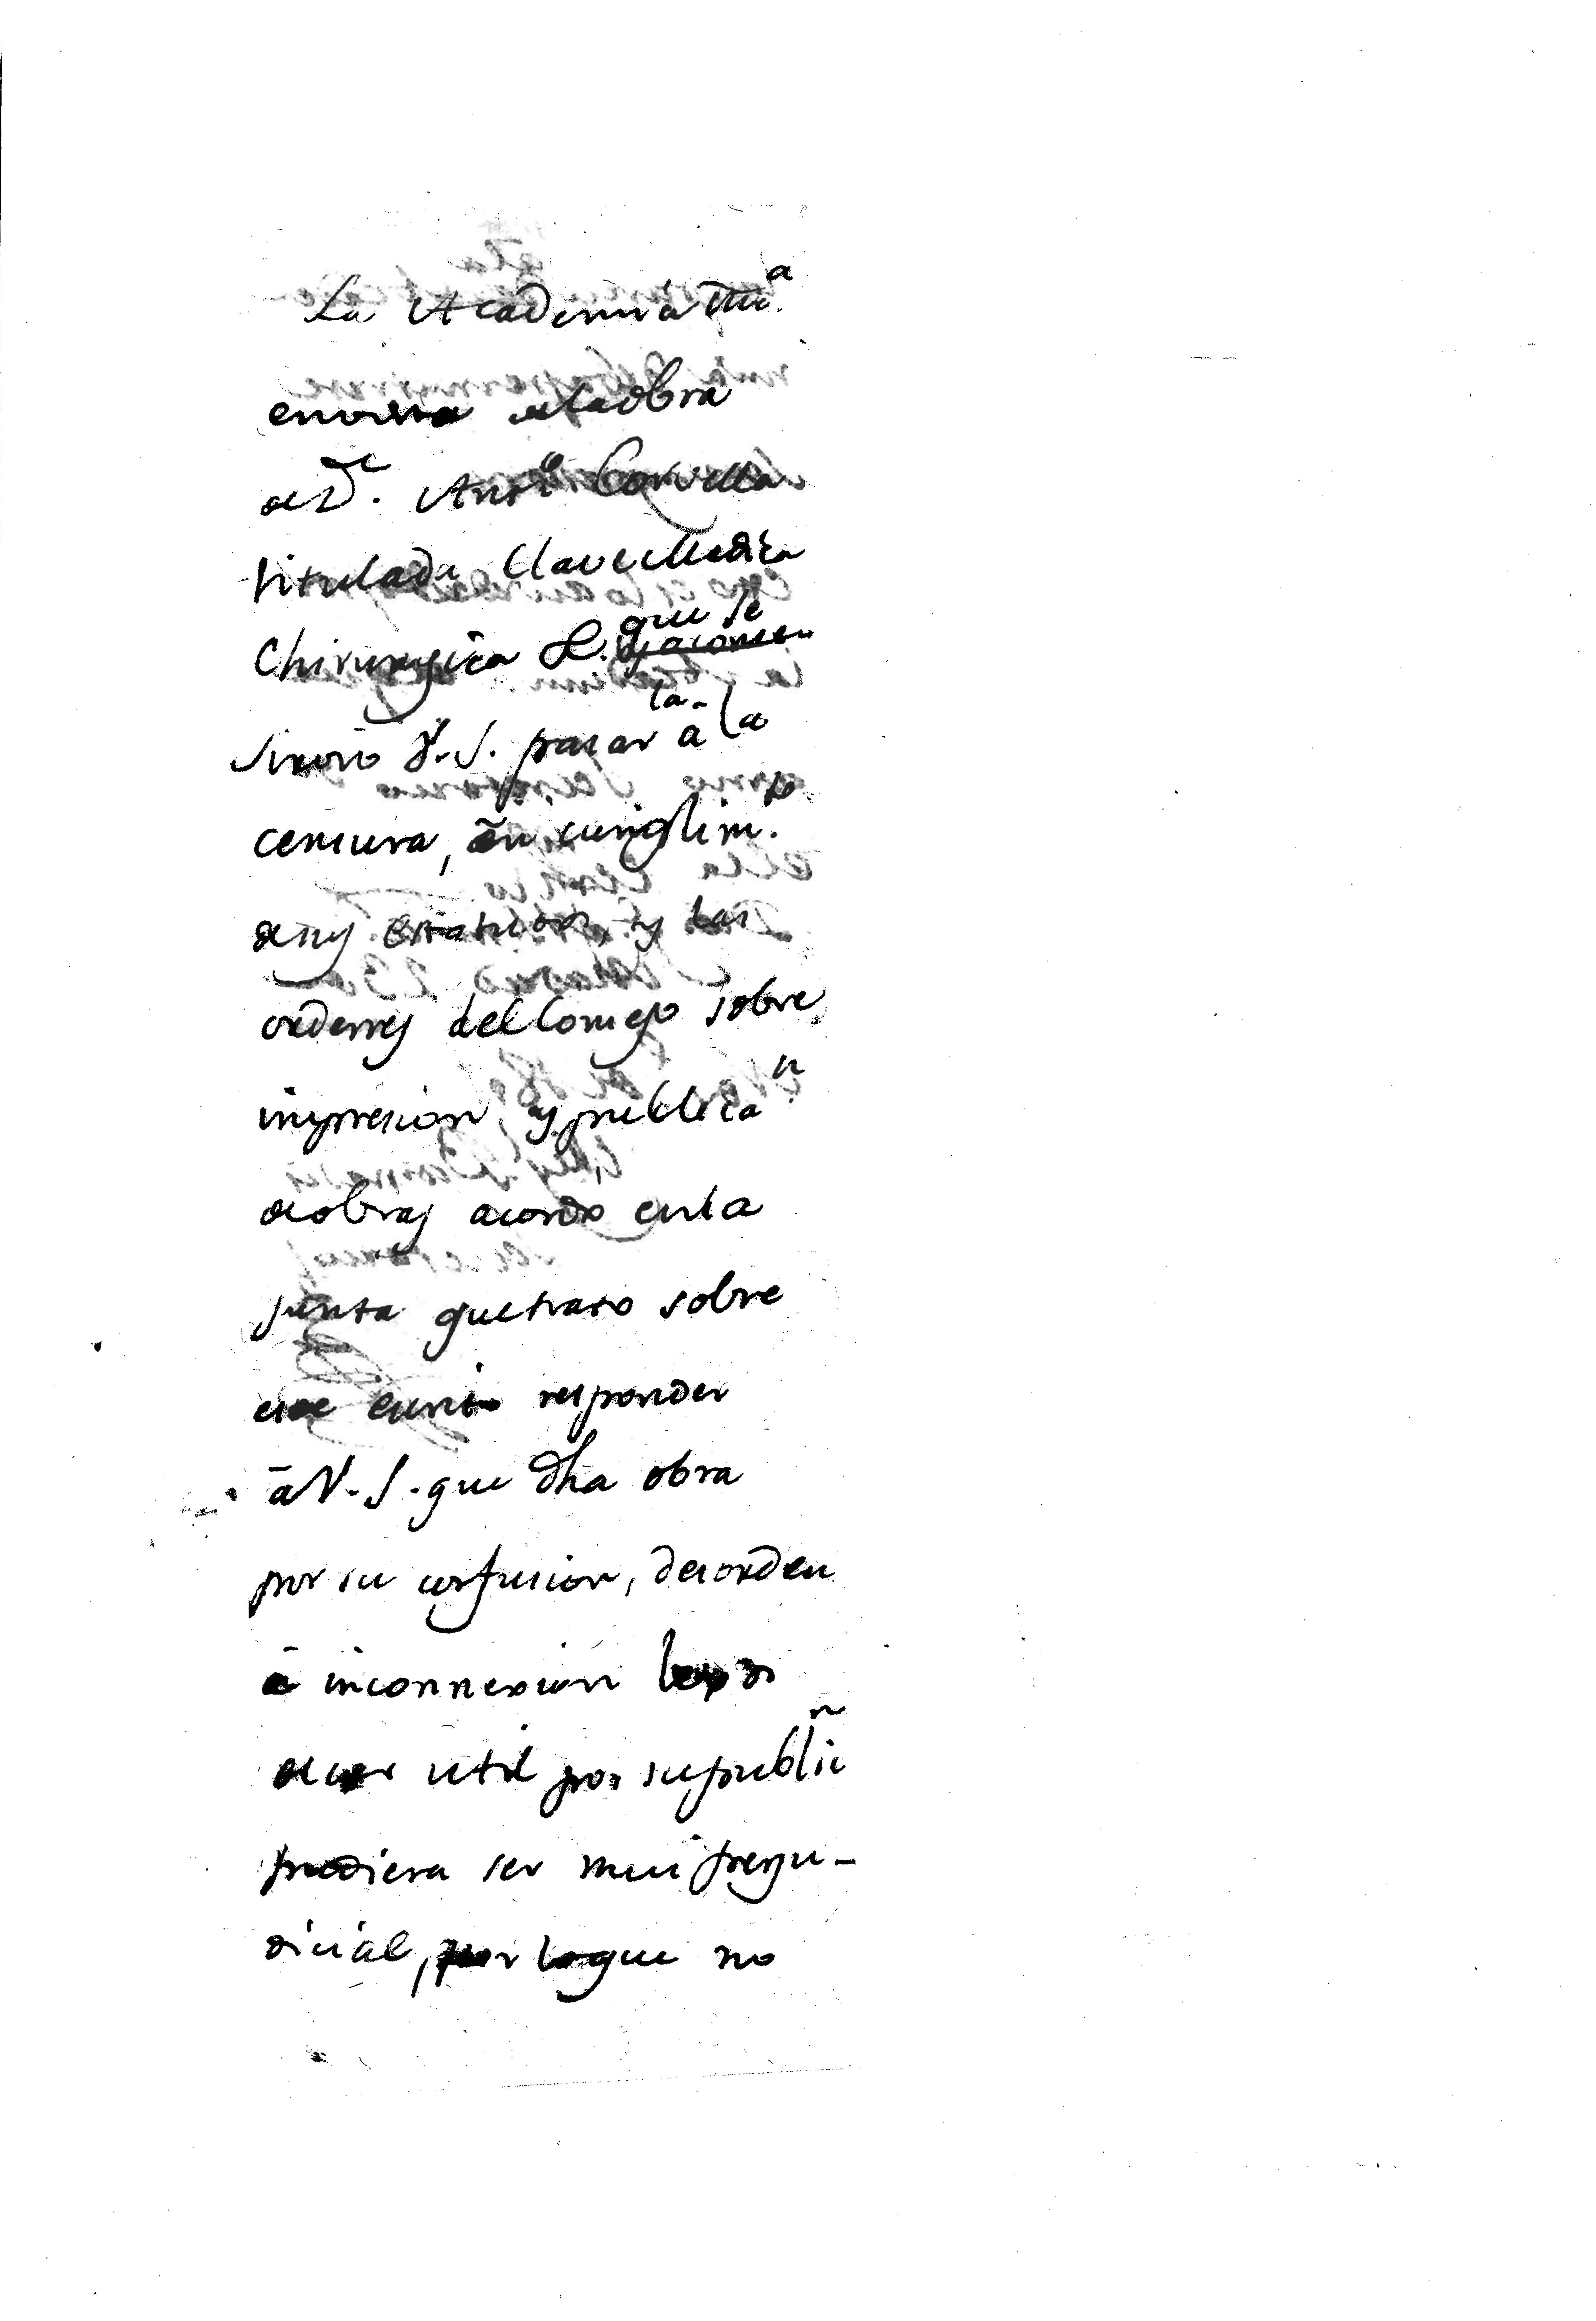 La Academia Mé.ª
enterada de la obra
de Dⁿ. Antº Corvella
titulada Clave Medica
Chirurgica &. que se
sirvio V.S. pasarla à la
censura, en cumplim.to
de sus estatutos, y las
ordenes del Consejo sobre
impresion, y publica.n
de obras acordo en la
junta que trato sobre
este punto responder
à V.S. que dha obra
por su confusion, desorden
è inconnexion lexos
de ser util por su publicn
pudiera ser mui perju-
dicial, por lo que no